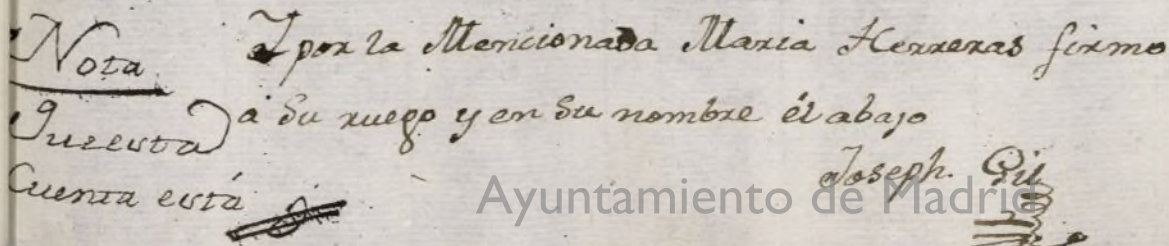 Nota
Que esta
Cuenta está
Y por la Mencionada Maria Herreras firmo
à Su ruego y en Su nombre él abajo
Joseph. Gil
Ayuntamiento de Madrid